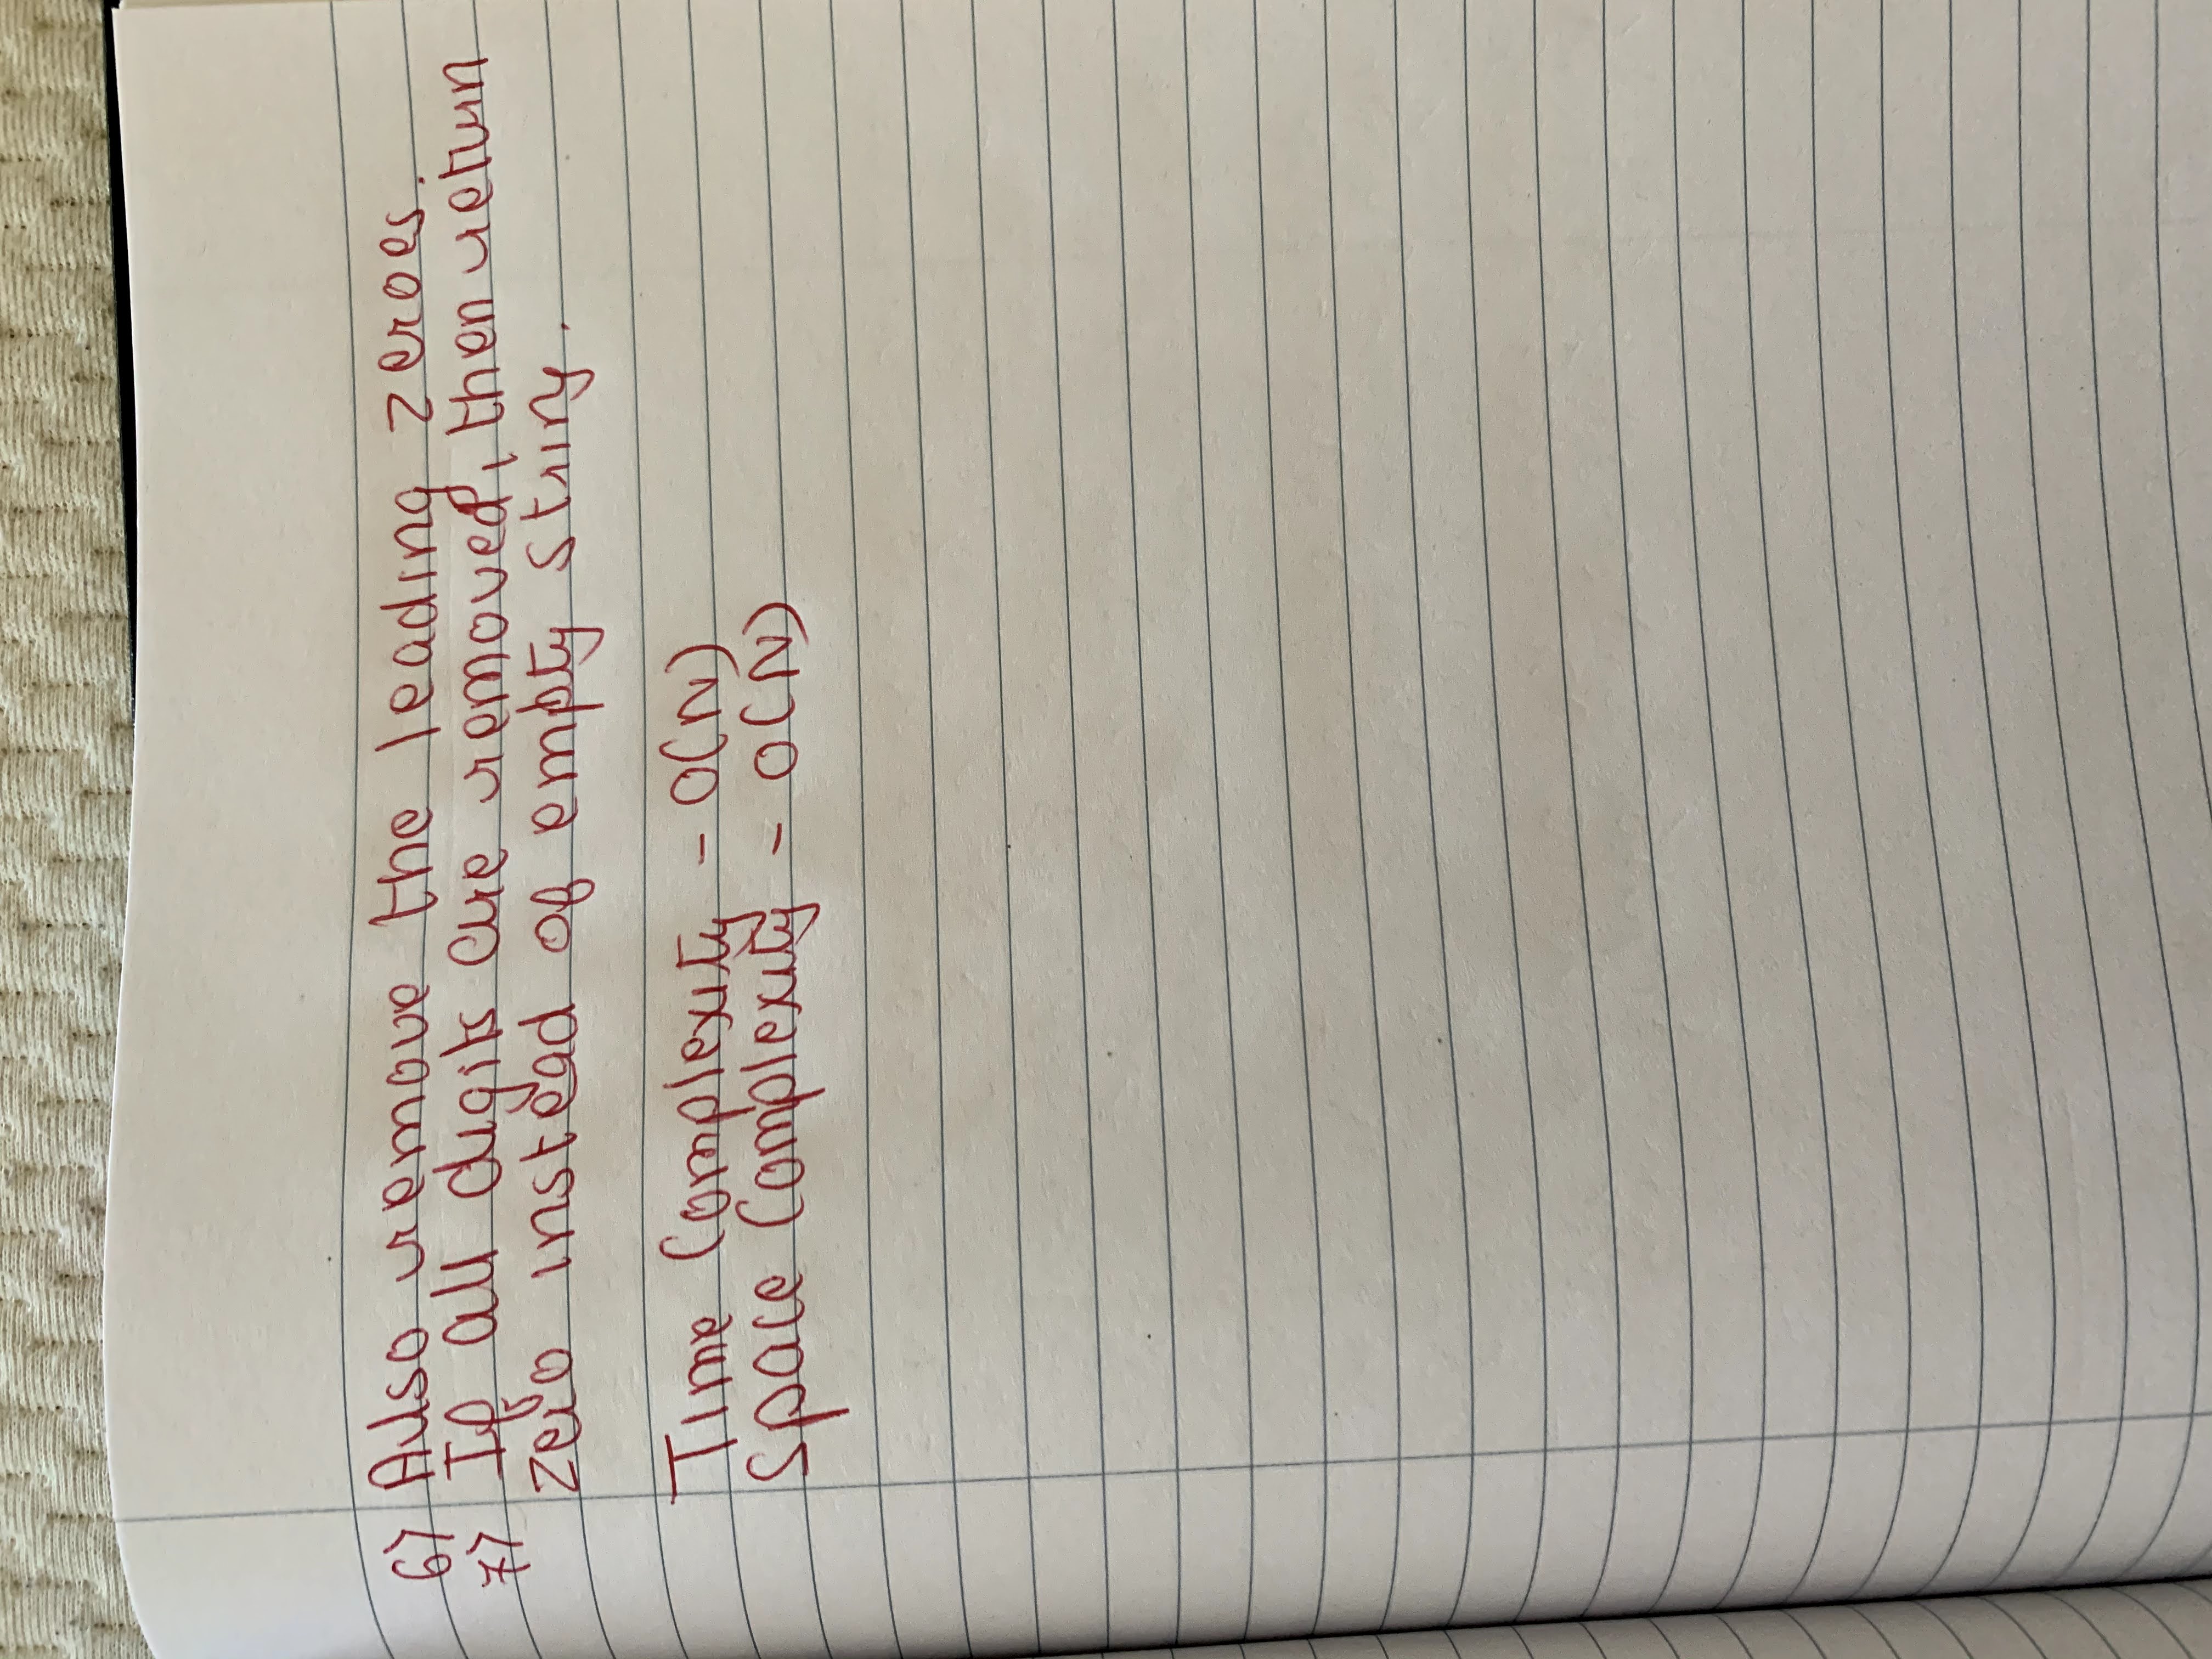 6) Also remove the leading zeroes.
7) If all digits are removed, then return
zero instead of empty string.
Time Complexity - O(N)
Space Complexity - O(N)